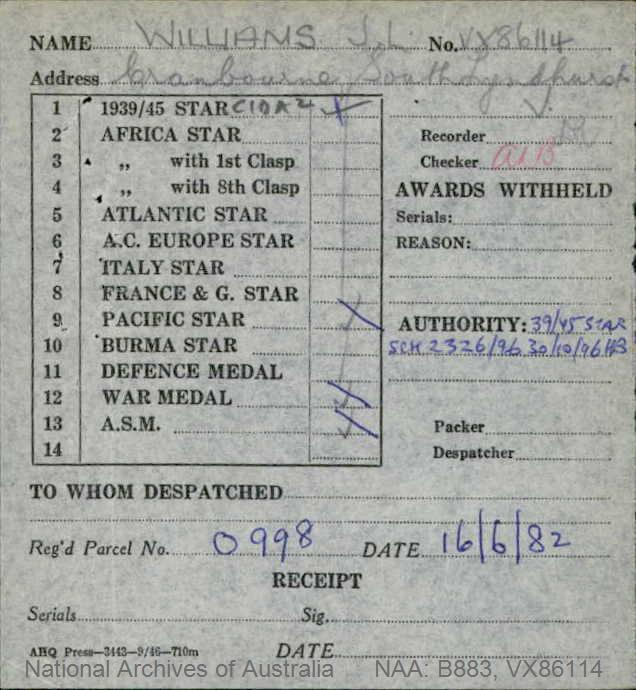 NAME WILLIAMS J. L. No. VX86114
Address Cranbourne South Lyndhurst
V.
1 1939/45 STAR
2 AFRICA STAR
3 „ with 1st Clasp
4 „ with 8th Clasp
5 ATLANTIC STAR
6 A.C. EUROPE STAR
7 ITALY STAR
8 FRANCE & G. STAR
9 PACIFIC STAR
10 BURMA STAR
11 DEFENCE MEDAL
12 WAR MEDAL
13 A.S.M.
14
Recorder
Checker
AWARDS WITHHELD
Serials:
REASON:
AUTHORITY: 39/45 STAR
SCH 2326/96 30/10/96 HB
Packer
Despatcher
TO WHOM DESPATCHED
Reg'd Parcel No. 0998 DATE 16/6/82
RECEIPT
Serials Sig.
AHQ Press—3443—9/46—710m DATE
National Archives of Australia NAA: B883, VX86114